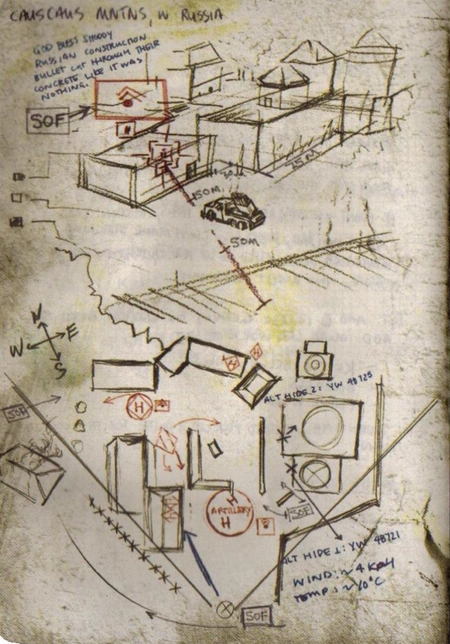 CAUSCAUS MNTNS, W RUSSIA
GOD BLESS SHODDY
RUSSIAN CONSTRUCTION.
BULLET CUT THROUGH THEIR
CONCRETE LIKE IT WAS
NOTHING.
SOF
75M
150M
50M
N
W
E
S
ALT HIDE 2: YW 48725
SOF
H
ARTILLERY
H
SOF
ALT HIDE 1: YW 48721
WIND: ~4 KPH
TEMP: ~10°C
SOF